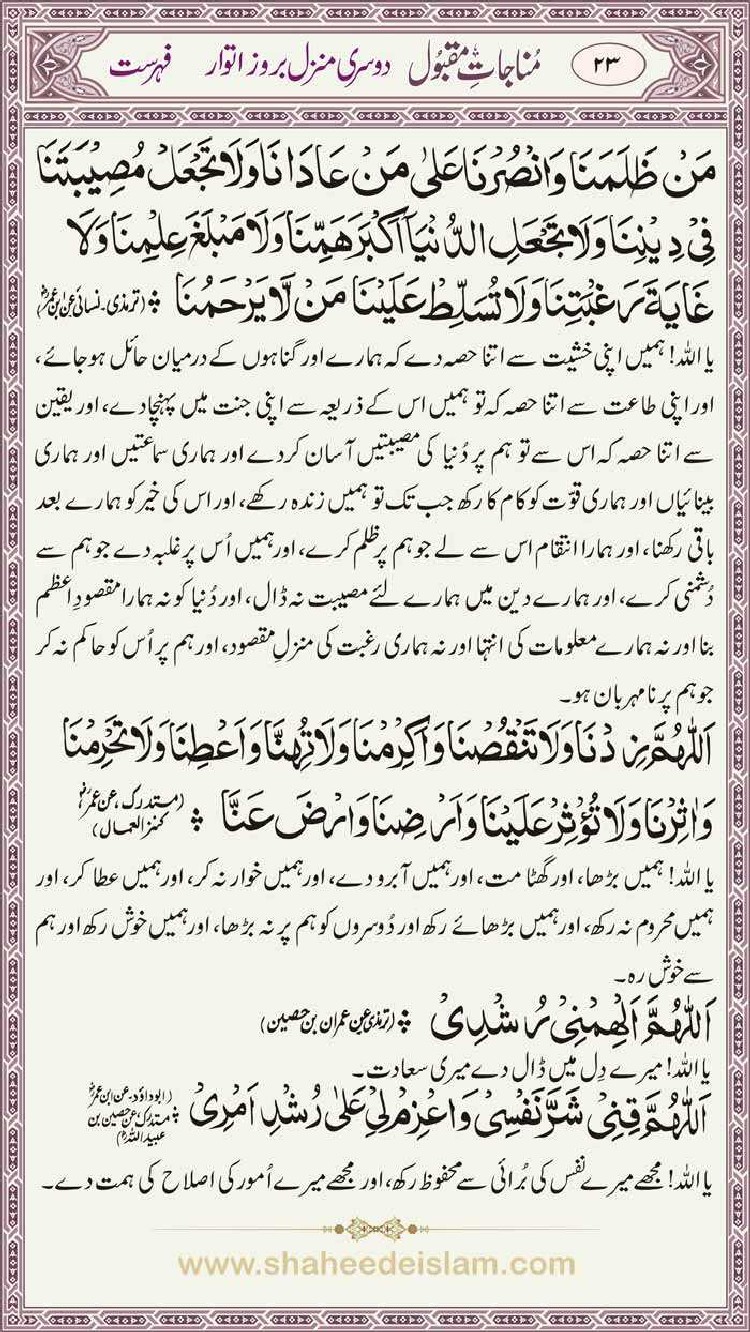 ۲۳ مُناجاتِ مقبُول دوسری منزل بروز اتوار فہرست
مَنْ ظَلَمَنَا وَانْصُرْنَا عَلٰى مَنْ عَادَانَا وَلَا تَجْعَلْ مُصِيْبَتَنَا
فِيْ دِيْنِنَا وَلَا تَجْعَلِ الدُّنْيَا اَكْبَرَ هَمِّنَا وَلَا مَبْلَغَ عِلْمِنَا وَلَا
غَايَةَ رَغْبَتِنَا وَلَا تُسَلِّطْ عَلَيْنَا مَنْ لَّا يَرْحَمُنَا (ترمذی۔نسائی عن ابن عمرؓ)
یا اللہ! ہمیں اپنی خشیت سے اتنا حصہ دے کہ ہمارے اور گناہوں کے درمیان حائل ہوجائے،
اور اپنی طاعت سے اتنا حصہ کہ تو ہمیں اس کے ذریعہ سے اپنی جنت میں پہنچادے، اور یقین
سے اتنا حصہ کہ اس سے تو ہم پر دُنیا کی مصیبتیں آسان کردے اور ہماری سماعتیں اور ہماری
بینائیاں اور ہماری قوّت کو کام کا رکھ جب تک تو ہمیں زندہ رکھے، اور اس کی خیر کو ہمارے بعد
باقی رکھنا، اور ہمارا انتقام اس سے لے جو ہم پر ظلم کرے، اور ہمیں اُس پر غلبہ دے جو ہم سے
دُشمنی کرے، اور ہمارے دین میں ہمارے لئے مصیبت نہ ڈال، اور دُنیا کو نہ ہمارا مقصودِ اعظم
بنا اور نہ ہمارے معلومات کی انتہا اور نہ ہماری رغبت کی منزلِ مقصود، اور ہم پر اُس کو حاکم نہ کر
جو ہم پر نامہربان ہو۔
اَللّٰهُمَّ زِدْنَا وَلَا تَنْقُصْنَا وَاَكْرِمْنَا وَلَا تُهِنَّا وَاَعْطِنَا وَلَا تَحْرِمْنَا
وَاٰثِرْنَا وَلَا تُؤْثِرْ عَلَيْنَا وَاَرْضِنَا وَارْضَ عَنَّا (مستدرک، عن عمرؓ، کنز العمال)
یا اللہ! ہمیں بڑھا، اور گھٹا مت، اور ہمیں آبرو دے، اور ہمیں خوار نہ کر، اور ہمیں عطا کر، اور
ہمیں محروم نہ رکھ، اور ہمیں بڑھائے رکھ اور دُوسروں کو ہم پر نہ بڑھا، اور ہمیں خوش رکھ اور ہم
سے خوش رہ۔
اَللّٰهُمَّ اَلْهِمْنِيْ رُشْدِيْ (ترمذی عن عمران بن حصین)
یا اللہ! میرے دِل میں ڈال دے میری سعادت۔
اَللّٰهُمَّ قِنِيْ شَرَّ نَفْسِيْ وَاعْزِمْ لِيْ عَلٰى رُشْدِ اَمْرِيْ (ابوداؤد۔عن ابن عمرؓ مستدرک عن حصین بن عبید اللہؓ)
یا اللہ! مجھے میرے نفس کی بُرائی سے محفوظ رکھ، اور مجھے میرے اُمور کی اصلاح کی ہمت دے۔
www.shaheedeislam.com